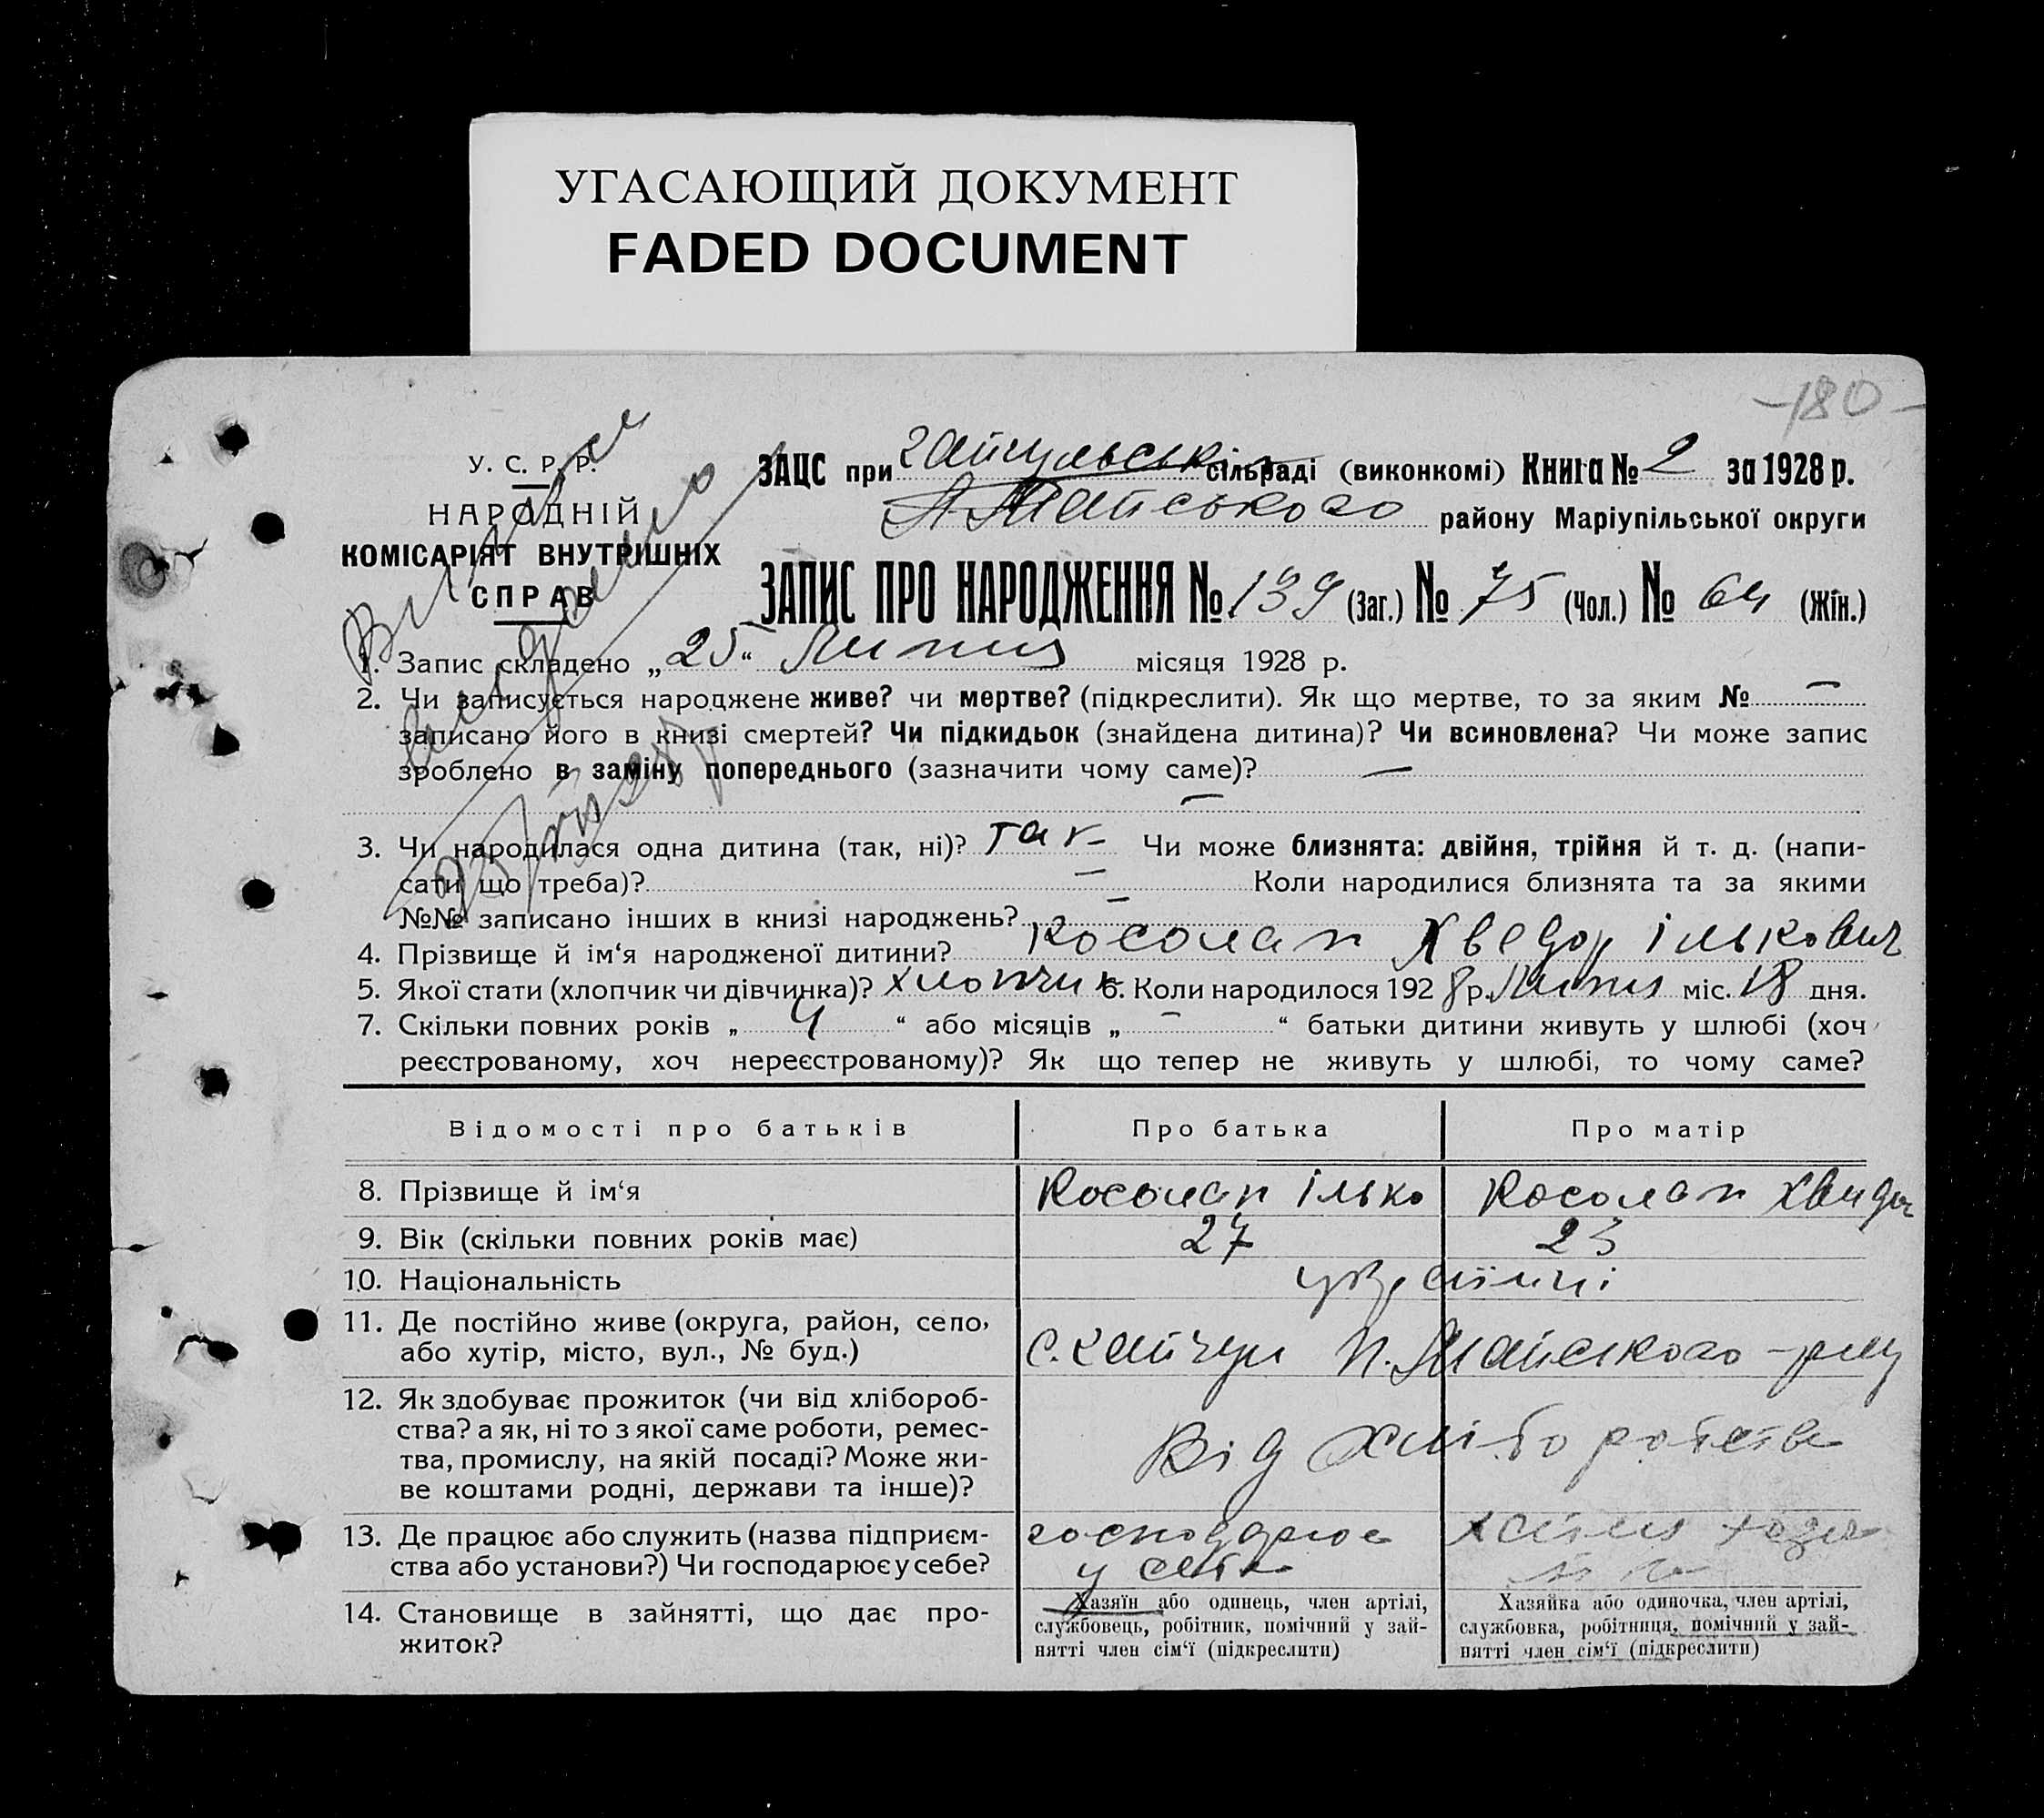 УГАСАЮЩИЙ ДОКУМЕНТ
FADED DOCUMENT
-180-
У. С. Р. Р.
НАРОДНІЙ
КОМІСАРІЯТ ВНУТРІШНІХ
СПРАВ
ЗАЦС при сільраді (виконкомі) Книга № 2 за 1928 р.
району Маріупільської округи
ЗАПИС ПРО НАРОДЖЕННЯ № 139 (заг.) № 75 (чол.) № 64 (жін.)
1. Запис складено „25“ Липня місяця 1928 р.
2. Чи записується народжене живе? чи мертве? (підкреслити). Як що мертве, то за яким № —
записано його в книзі смертей? Чи підкидьок (знайдена дитина)? Чи всиновлена? Чи може запис
зроблено в заміну попереднього (зазначити чому саме)? —
—
3. Чи народилася одна дитина (так, ні)? так Чи може близнята: двійня, трійня й т. д. (напи-
сати що треба)? — Коли народилися близнята та за якими
№№ записано інших в книзі народжень? —
4. Прізвище й ім‘я народженої дитини? Косолап Хведор Ількович
5. Якої стати (хлопчик чи дівчинка)? хлопчик 6. Коли народилося 1928 р. Липня міс. 18 дня.
7. Скільки повних років „ 4 “ або місяців „ — “ батьки дитини живуть у шлюбі (хоч
реєстрованому, хоч нереєстрованому)? Як що тепер не живуть у шлюбі, то чому саме?
Відомості про батьків Про батька Про матір
8. Прізвище й ім‘я Косолап Ілько Косолап
9. Вік (скільки повних років має) 27 23
10. Національність
11. Де постійно живе (округа, район, село,
або хутір, місто, вул., № буд.) с.
12. Як здобуває прожиток (чи від хлібороб-
ства? а як, ні то з якої саме роботи, ремес-
тва, промислу, на якій посаді? Може жи-
ве коштами родні, держави та інше)? Від хліборобства
13. Де працює або служить (назва підприєм- господарює
ства або установи?) Чи господарює у себе? у себе
14. Становище в зайнятті, що дає про-
житок?
Хазяїн або одинець, член артілі,
службовець, робітник, помічний у зай-
нятті член сім‘ї (підкреслити)
Хазяйка або одиночка, член артілі,
службовка, робітниця, помічний у зай-
нятті член сім‘ї (підкреслити)